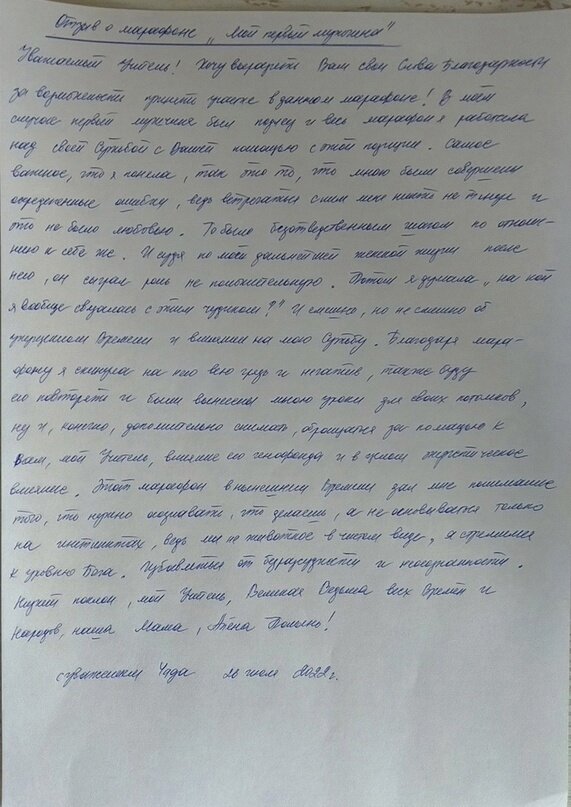 Отзыв о марафоне „Мой первый мужчина"
Уважаемый Учитель! Хочу выразить Вам свои Слова Благодарности
за возможность принять участие в данном марафоне! В моём
случае первый мужчина был подлец и весь марафон я работала
над своей Судьбой с Вашей помощью с этой позиции. Самое
важное, что я поняла, так это то, что мною были совершены
определенные ошибки, ведь встречаться с ним меня никто не тянул и
это не было любовью. То было безответственным шагом по отноше-
нию к себе же. И судя по моей дальнейшей женской жизни после
него, он сыграл роль не положительную. Потом я думала „на кой
я вообще связалась с этим чудиком?" И смешно, но не смешно об
упущенном Времени и влиянии на мою Судьбу. Благодаря мара-
фону я скинула на него всю грязь и негатив, также буду
его повторять и были вынесены мною уроки для своих потомков,
ну и, конечно, дополнительно снимать, обращаясь за помощью к
Вам, мой Учитель, влияние его генофонда и в целом энергетическое
влияние. Этот марафон в нынешнем Времени дал мне понимание
того, что нужно осознавать, что делаешь, а не основываться только
на инстинктах, ведь мы не животное в чистом виде, а стремимся
к уровню Бога. Избавляться от безрассудности и неосознанности.
Низкий поклон, мой Учитель, Великая Ведьма всех Времён и
Народов, наша Мама, Алёна Полынь!
с уважением Чада 26 июля 2022 г.